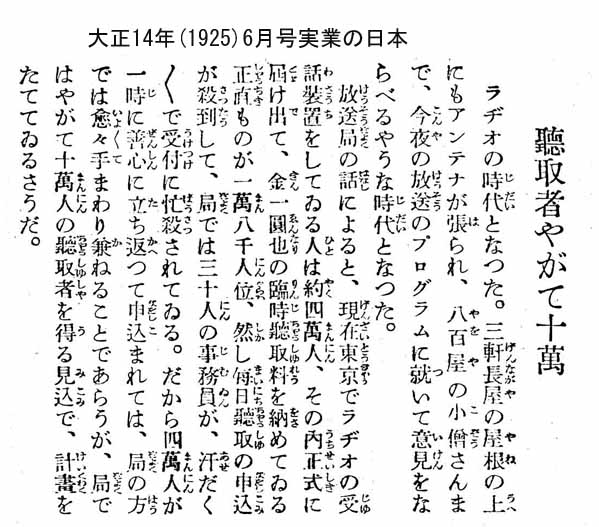 大正14年(1925)6月号実業の日本
聽取者やがて十萬
ラヂオの時代となつた。三軒長屋の屋根の上
にもアンテナが張られ、八百屋の小僧さんま
で、今夜の放送のプログラムに就いて意見をな
らべるやうな時代となつた。
放送局の話によると、現在東京でラヂオの受
話装置をしてゐる人は約四萬人、その内正式に
届け出て、金一圓也の臨時聽取料を納めてゐる
正直ものが一萬八千人位、然し毎日聽取の申込
が殺到して、局では三十人の事務員が、汗だく
〱で受付に忙殺されてゐる。だから四萬人が
一時に善心に立ち返つて申込まれては、局の方
では愈々手まわり兼ねることであらうが、局で
はやがて十萬人の聽取者を得る見込で、計畫を
たててゐるさうだ。